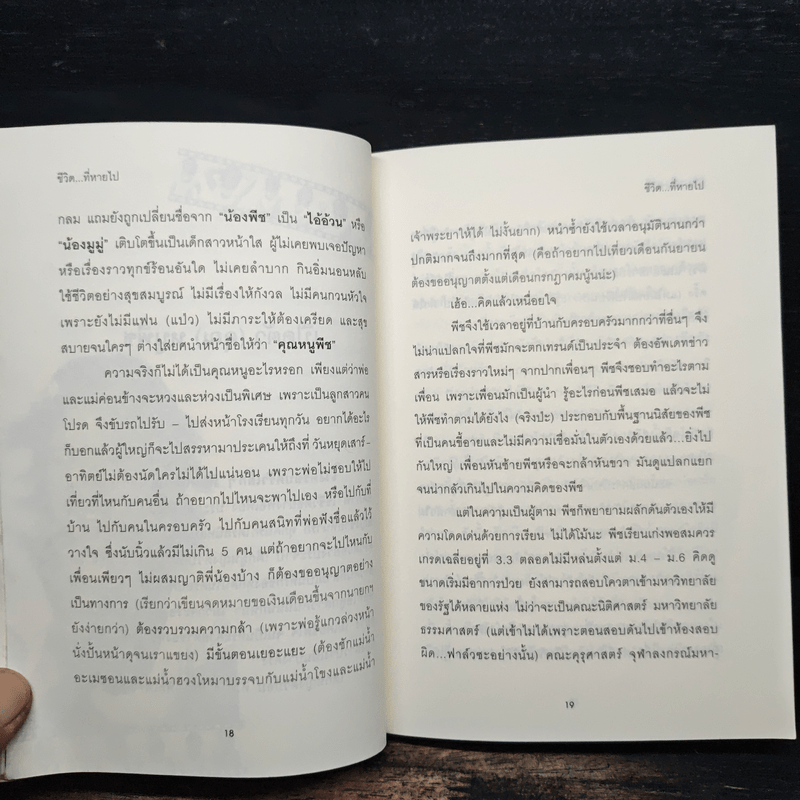 ชีวิต...ที่หายไป
กลม แถมยังถูกเปลี่ยนชื่อจาก “น้องพีช” เป็น “ไอ้อ้วน” หรือ
“น้องมูมู่” เติบโตขึ้นเป็นเด็กสาวหน้าใส ผู้ไม่เคยพบเจอปัญหา
หรือเรื่องราวทุกข์ร้อนอันใด ไม่เคยลำบาก กินอิ่มนอนหลับ
ใช้ชีวิตอย่างสุขสมบูรณ์ ไม่มีเรื่องให้กังวล ไม่มีคนกวนหัวใจ
เพราะยังไม่มีแฟน (แป่ว) ไม่มีภาระให้ต้องเครียด และสุข
สบายจนใครๆ ต่างใส่ยศนำหน้าชื่อให้ว่า “คุณหนูพีช”
ความจริงก็ไม่ได้เป็นคุณหนูอะไรหรอก เพียงแต่ว่าพ่อ
และแม่ค่อนข้างจะหวงและห่วงเป็นพิเศษ เพราะเป็นลูกสาวคน
โปรด จึงขับรถไปรับ – ไปส่งหน้าโรงเรียนทุกวัน อยากได้อะไร
ก็บอกแล้วผู้ใหญ่ก็จะไปสรรหามาประเคนให้ถึงที่ วันหยุดเสาร์-
อาทิตย์ไม่ต้องนัดใครไม่ได้ไปแน่นอน เพราะพ่อไม่ชอบให้ไป
เที่ยวที่ไหนกับคนอื่น ถ้าอยากไปไหนจะพาไปเอง หรือไปกับที่
บ้าน ไปกับคนในครอบครัว ไปกับคนสนิทที่พ่อฟังชื่อแล้วไว้
วางใจ ซึ่งนับนิ้วแล้วมีไม่เกิน 5 คน แต่ถ้าอยากจะไปไหนกับ
เพื่อนเพียวๆ ไม่ผสมญาติพี่น้องบ้าง ก็ต้องขออนุญาตอย่าง
เป็นทางการ (เรียกว่าเขียนจดหมายขอเงินเดือนขึ้นจากนายกฯ
ยังง่ายกว่า) ต้องรวบรวมความกล้า (เพราะพ่อรู้แกวล่วงหน้า
นั่งปั้นหน้าดุจนเราแขยง) มีขั้นตอนเยอะแยะ (ต้องชักแม่น้ำ
อะเมซอนและแม่น้ำฮวงโหมาบรรจบกับแม่น้ำโขงและแม่น้ำ
18
ชีวิต...ที่หายไป
เจ้าพระยาให้ได้ ไม่งั้นยาก) หนำซ้ำยังใช้เวลาอนุมัตินานกว่า
ปกติมากจนถึงมากที่สุด (คือถ้าอยากไปเที่ยวเดือนกันยายน
ต้องขออนุญาตตั้งแต่เดือนกรกฎาคมนู้นน่ะ)
เฮ้อ...คิดแล้วเหนื่อยใจ
พีชจึงใช้เวลาอยู่ที่บ้านกับครอบครัวมากกว่าที่อื่นๆ จึง
ไม่น่าแปลกใจที่พีชมักจะตกเทรนด์เป็นประจำ ต้องอัพเดทข่าว
สารหรือเรื่องราวใหม่ๆ จากปากเพื่อนๆ พีชจึงชอบทำอะไรตาม
เพื่อน เพราะเพื่อนมักเป็นผู้นำ รู้อะไรก่อนพีชเสมอ แล้วจะไม่
ให้พีชทำตามได้ยังไง (จริงป่ะ) ประกอบกับพื้นฐานนิสัยของพีช
ที่เป็นคนขี้อายและไม่มีความเชื่อมั่นในตัวเองด้วยแล้ว...ยิ่งไป
กันใหญ่ เพื่อนหันซ้ายพีชหรือจะกล้าหันขวา มันดูแปลกแยก
จนน่ากลัวเกินไปในความคิดของพีช
แต่ในความเป็นผู้ตาม พีชก็พยายามผลักดันตัวเองให้มี
ความโดดเด่นด้วยการเรียน ไม่ได้โม้นะ พีชเรียนเก่งพอสมควร
เกรดเฉลี่ยอยู่ที่ 3.3 ตลอดไม่มีหล่นตั้งแต่ ม.4 – ม.6 คิดดู
ขนาดเริ่มมีอาการป่วย ยังสามารถสอบโควตาเข้ามหาวิทยาลัย
ของรัฐได้หลายแห่ง ไม่ว่าจะเป็นคณะนิติศาสตร์ มหาวิทยาลัย
ธรรมศาสตร์ (แต่เข้าไม่ได้เพราะตอนสอบดันไปเข้าห้องสอบ
ผิด...ฟาล์วซะอย่างนั้น) คณะคุรุศาสตร์ จุฬาลงกรณ์มหา-
19